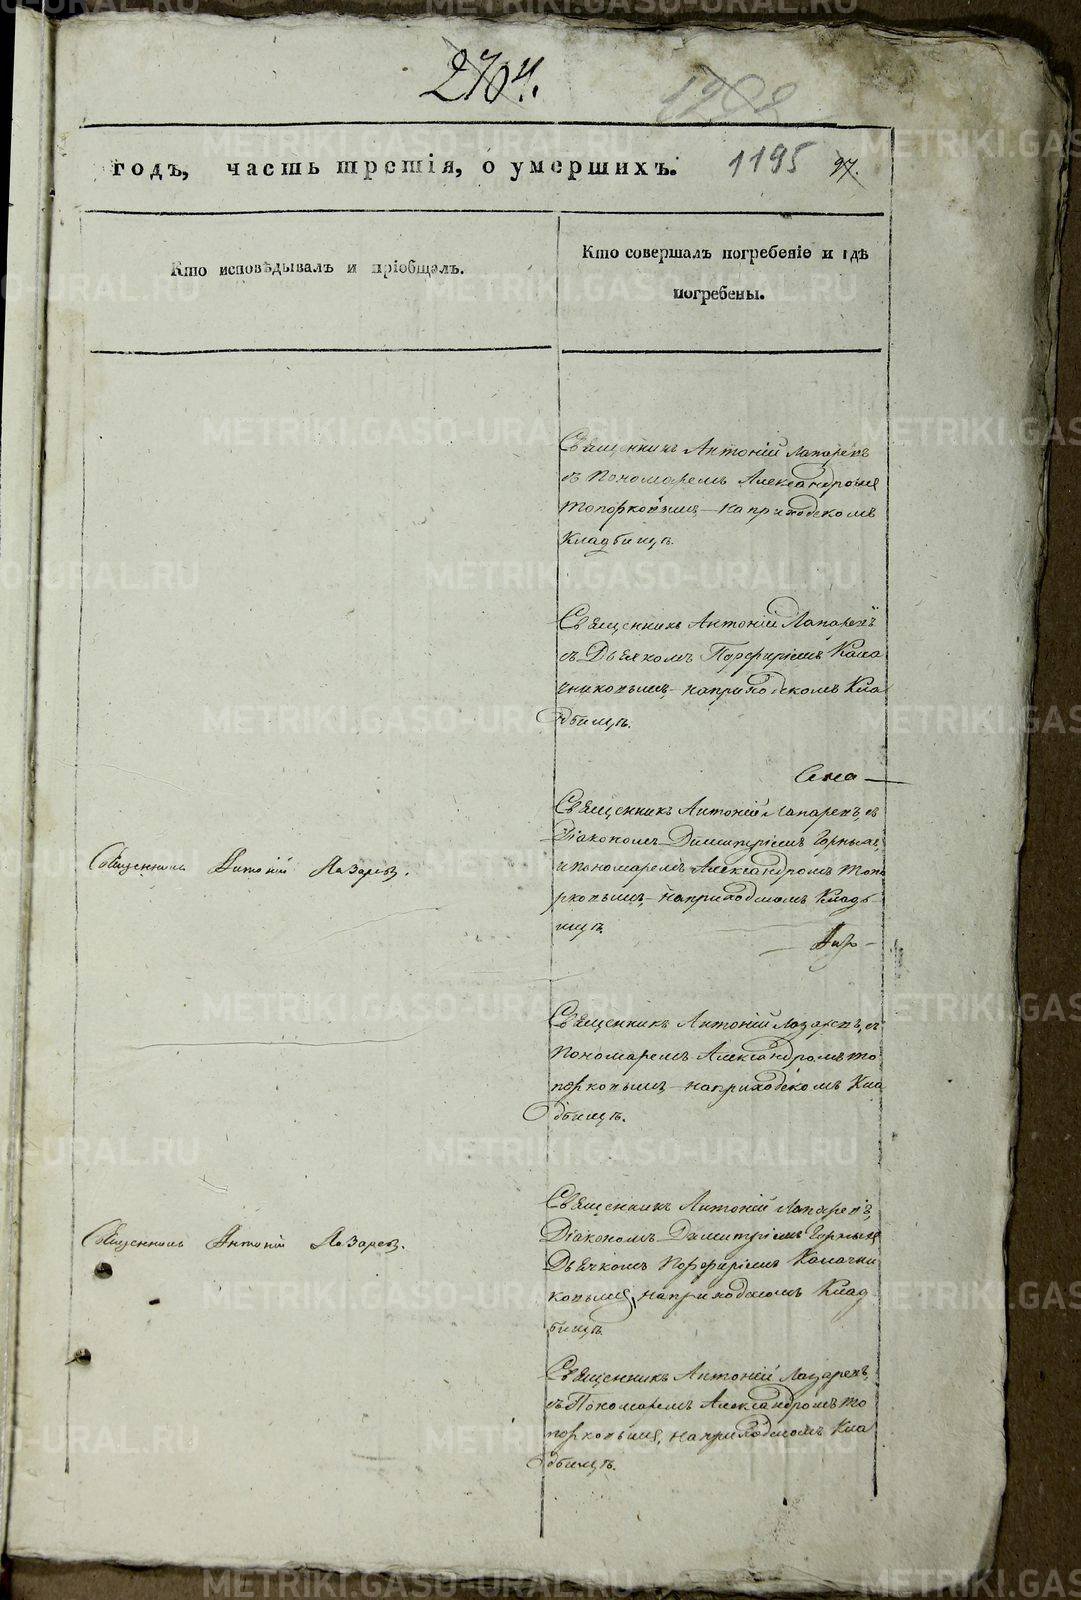 2704.
1195
97.
годъ, часть третія, о умершихъ.
Кто исповѣдывалъ и пріобщалъ.
Кто совершалъ погребеніе и гдѣ
погребены.
Священникъ Антоній Лазаревъ
съ Пономаремъ Александромъ
Топорковымъ, – на приходскомъ
Кладбищѣ.
Священникъ Антоній Лазаревъ
съ Дьячкомъ Порфиріемъ Кала
чниковымъ, – на приходскомъ Кла
дбищѣ.
Священникъ Антоній Лазаревъ, съ
Діакономъ Димитріемъ Горныхъ,
и пономаремъ Александромъ Топо
рковымъ, – на приходскомъ Кладб-
ищѣ
Священникъ Антоній Лазаревъ.
Священникъ Антоній Лазаревъ, съ
Пономаремъ Александромъ То
порковымъ, – на приходскомъ Кла
дбищѣ.
Священникъ Антоній Лазаревъ,
Діакономъ Димитріемъ Горныхъ
Дьячкомъ Порфиріемъ Калачни
ковымъ, на приходскомъ Клад
бищѣ
Священникъ Антоній Лазаревъ.
Священникъ Антоній Лазаревъ,
съ Пономаремъ Александромъ То
порковымъ, на приходскомъ Кла
дбищѣ.
METRIKI.GASO-URAL.RU